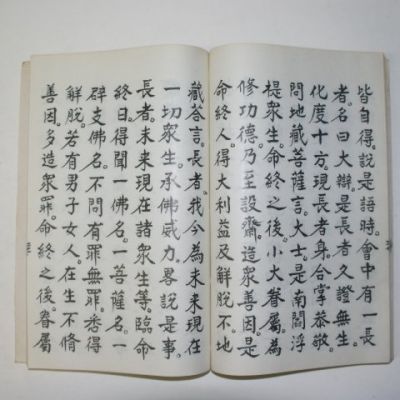 皆自得。說是語時。會中有一長
者。名曰大辯。是長者久證無生。
化度十方。現長者身。合掌恭敬。
問地藏菩薩言。大士。是南閻浮
提眾生。命終之後。小大眷屬。為
修功德。乃至設齋。造眾善因。是
命終人。得大利益及解脫不。地
藏答言。長者。我今為未來現在
一切眾生。承佛威力。畧說是事。
長者。未來現在諸眾生等。臨命
終日。得聞一佛名。一菩薩名。一
辟支佛名。不問有罪無罪。悉得
解脫。若有男子女人。在生不脩
善因。多造眾罪。命終之後。眷屬